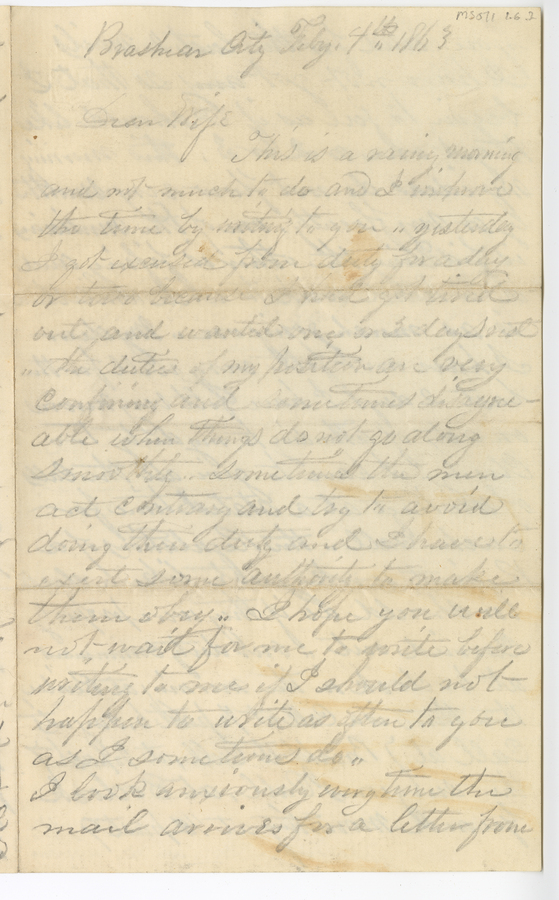 MS 011 1.6.2
Brashear City Feby. 4th 1863
Dear Wife
This is a rainy morning
and not much to do and I improve
the time by writing to you " yesterday
I got excused from duty for a day
or two because I had got tired
out and wanted one or 2 days rest
" the duties of my position are very
confining and sometimes disagre-
able when things do not go along
smoothly.. sometimes the men
act contrary and try to avoid
doing their duty and I have to
exert some authority to make
them obey" I hope you will
not wait for me to write before
writing to me if I should not
happen to write as often to you
as I sometimes do"
I look anxiously every time the
mail arrives for a letter from